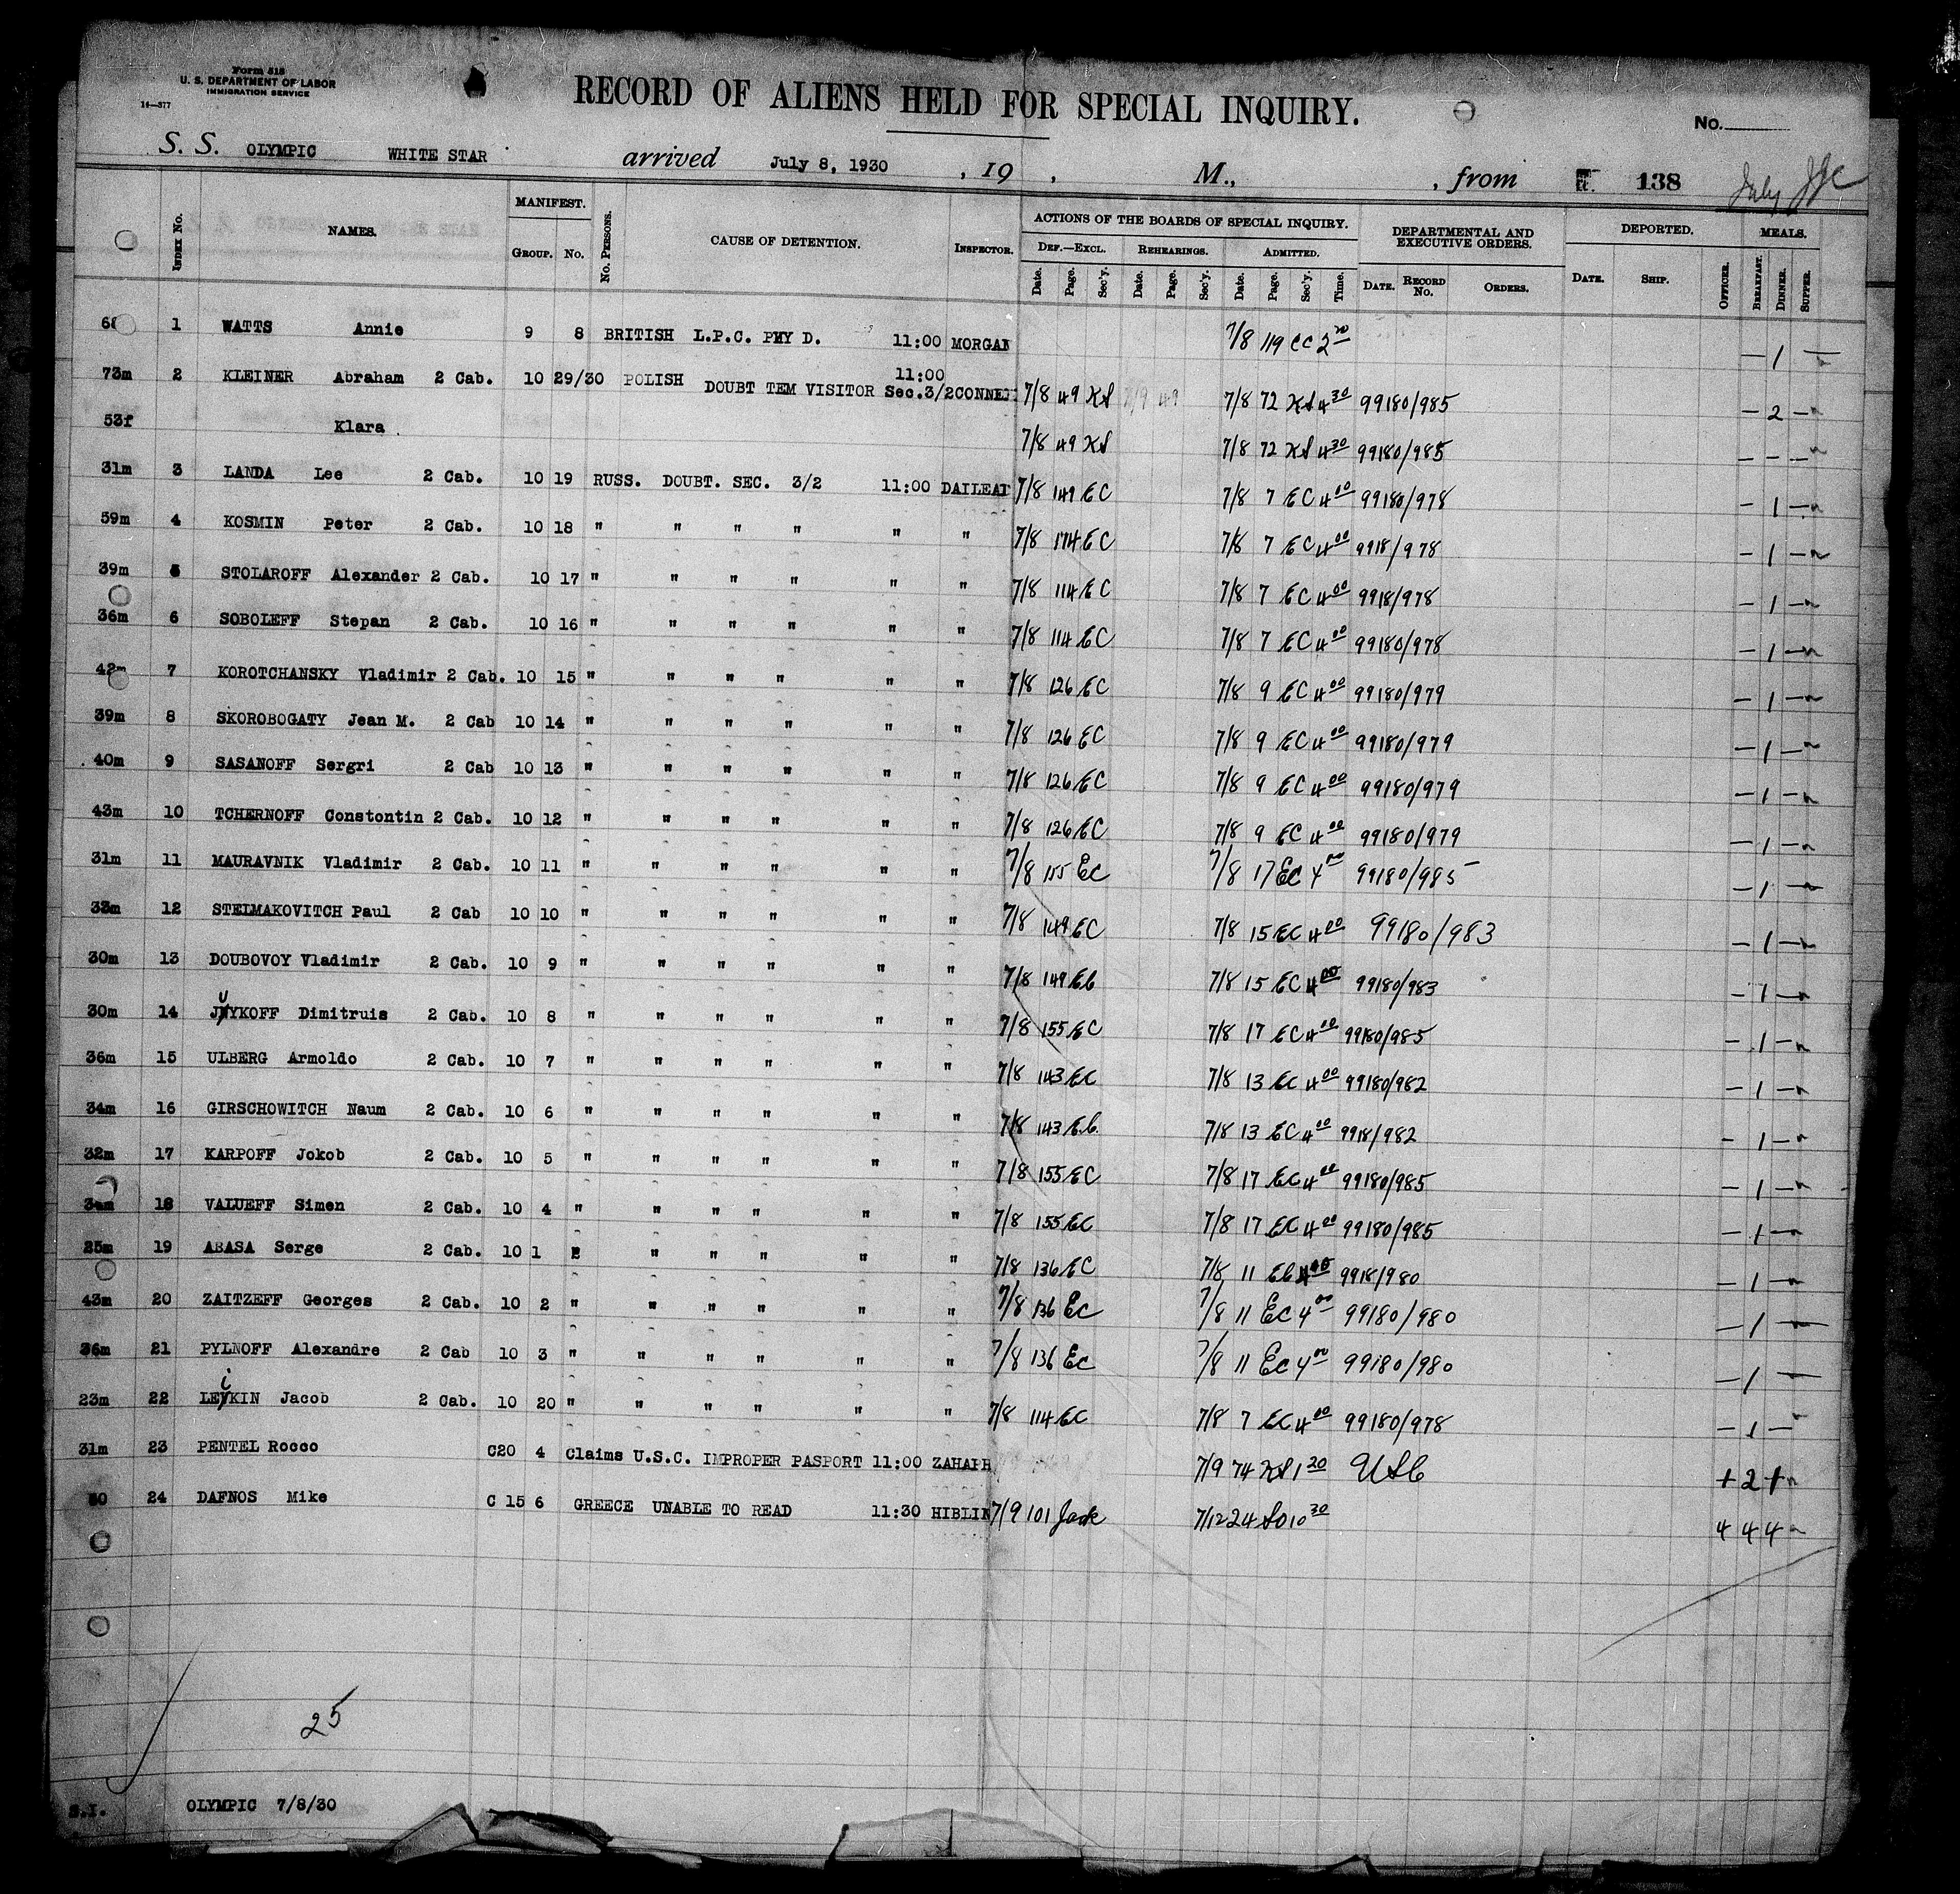 Form 518
U. S. DEPARTMENT OF LABOR
IMMIGRATION SERVICE
14—377
RECORD OF ALIENS HELD FOR SPECIAL INQUIRY.
No.
S. S. OLYMPIC WHITE STAR arrived July 8, 1930 , 19 , M., , from 138 July
INDEX No. NAMES. MANIFEST. GROUP. No. No. PERSONS. CAUSE OF DETENTION. INSPECTOR. ACTIONS OF THE BOARDS OF SPECIAL INQUIRY. DEF.—EXCL. Date. Page. Sec'y. REHEARINGS. Date. Page. Sec'y. ADMITTED. Date. Page. Sec'y. Time. DEPARTMENTAL AND EXECUTIVE ORDERS. DATE. RECORD No. ORDERS. DEPORTED. DATE. SHIP. OFFICER. MEALS. BREAKFAST. DINNER. SUPPER.
1 WATTS Annie 9 8 BRITISH L.P.C. PHY D. 11:00 MORGAN 7/8 119 CC 2 — 1 —
73m 2 KLEINER Abraham 2 Cab. 10 29/30 POLISH DOUBT TEM VISITOR 11:00 Sec.3/2 7/8 49 KS 7/9 49 7/8 72 KS 4 30 99180/985 — 2 —
53f Klara 7/8 49 KS 7/8 72 KS 4 30 99180/985 — — —
31m 3 LANDA Lee 2 Cab. 10 19 RUSS. DOUBT. SEC. 3/2 11:00 DAILEAD 7/8 149 EC 7/8 7 EC 4 00 99180/978 — 1 —
59m 4 KOSMIN Peter 2 Cab. 10 18 " " " " " " 7/8 174 EC 7/8 7 EC 4 00 9918/978 — 1 —
39m 5 STOLAROFF Alexander 2 Cab. 10 17 " " " " " " 7/8 114 EC 7/8 7 EC 4 00 9918/978 — 1 —
36m 6 SOBOLEFF Stepan 2 Cab. 10 16 " " " " " " 7/8 114 EC 7/8 7 EC 4 00 99180/978 — 1 —
42m 7 KOROTCHANSKY Vladimir 2 Cab. 10 15 " " " " " " 7/8 126 EC 7/8 9 EC 4 00 99180/979 — 1 —
39m 8 SKOROBOGATY Jean M. 2 Cab 10 14 " " " " " " 7/8 126 EC 7/8 9 EC 4 00 99180/979 — 1 —
40m 9 SASANOFF Sergri 2 Cab 10 13 " " " " " " 7/8 126 EC 7/8 9 EC 4 00 99180/979 — 1 —
43m 10 TCHERNOFF Constontin 2 Cab. 10 12 " " " " " " 7/8 126 EC 7/8 9 EC 4 00 99180/979 — 1 —
31m 11 MAURAVNIK Vladimir 2 Cab. 10 11 " " " " " " 7/8 155 EC 7/8 17 EC 4 00 99180/985 — 1 —
33m 12 STELMAKOVITCH Paul 2 Cab 10 10 " " " " " " 7/8 149 EC 7/8 15 EC 4 00 99180/983 — 1 —
30m 13 DOUBOVOY Vladimir 2 Cab. 10 9 " " " " " " 7/8 149 EC 7/8 15 EC 4 00 99180/983 — 1 —
30m 14 JUYKOFF Dimitruis 2 Cab. 10 8 " " " " " " 7/8 155 EC 7/8 17 EC 4 00 99180/985 — 1 —
36m 15 ULBERG Armoldo 2 Cab. 10 7 " " " " " " 7/8 143 EC 7/8 13 EC 4 00 99180/982 — 1 —
34m 16 GIRSCHOWITCH Naum 2 Cab. 10 6 " " " " " " 7/8 143 E.C. 7/8 13 EC 4 00 9918/982 — 1 —
32m 17 KARPOFF Jokob 2 Cab. 10 5 " " " " " " 7/8 155 EC 7/8 17 EC 4 00 99180/985 — 1 —
18 VALUEFF Simen 2 Cab. 10 4 " " " " " " 7/8 155 EC 7/8 17 EC 4 00 99180/985 — 1 —
25m 19 ABASA Serge 2 Cab. 10 1 " " " " " 7/8 136 EC 7/8 11 EC 4 00 9918/980 — 1 —
43m 20 ZAITZEFF Georges 2 Cab. 10 2 " " " " " " 7/8 136 EC 7/8 11 EC 4 00 99180/980 — 1 —
36m 21 PYLNOFF Alexandre 2 Cab 10 3 " " " " " " 7/8 136 EC 7/8 11 EC 4 00 99180/980 — 1 —
23m 22 LEiKIN Jacob 2 Cab. 10 20 " " " " " " 7/8 114 EC 7/8 7 EC 4 00 99180/978 — 1 —
31m 23 PENTEL Rocco C20 4 Claims U.S.C. IMPROPER PASPORT 11:00 7/9 74 KS 1 20 USC + 2 +
24 DAFNOS Mike C 15 6 GREECE UNABLE TO READ 11:30 HIBLIN 7/9 101 7/12 24 10 30 4 4 4
25
S.I. OLYMPIC 7/8/30